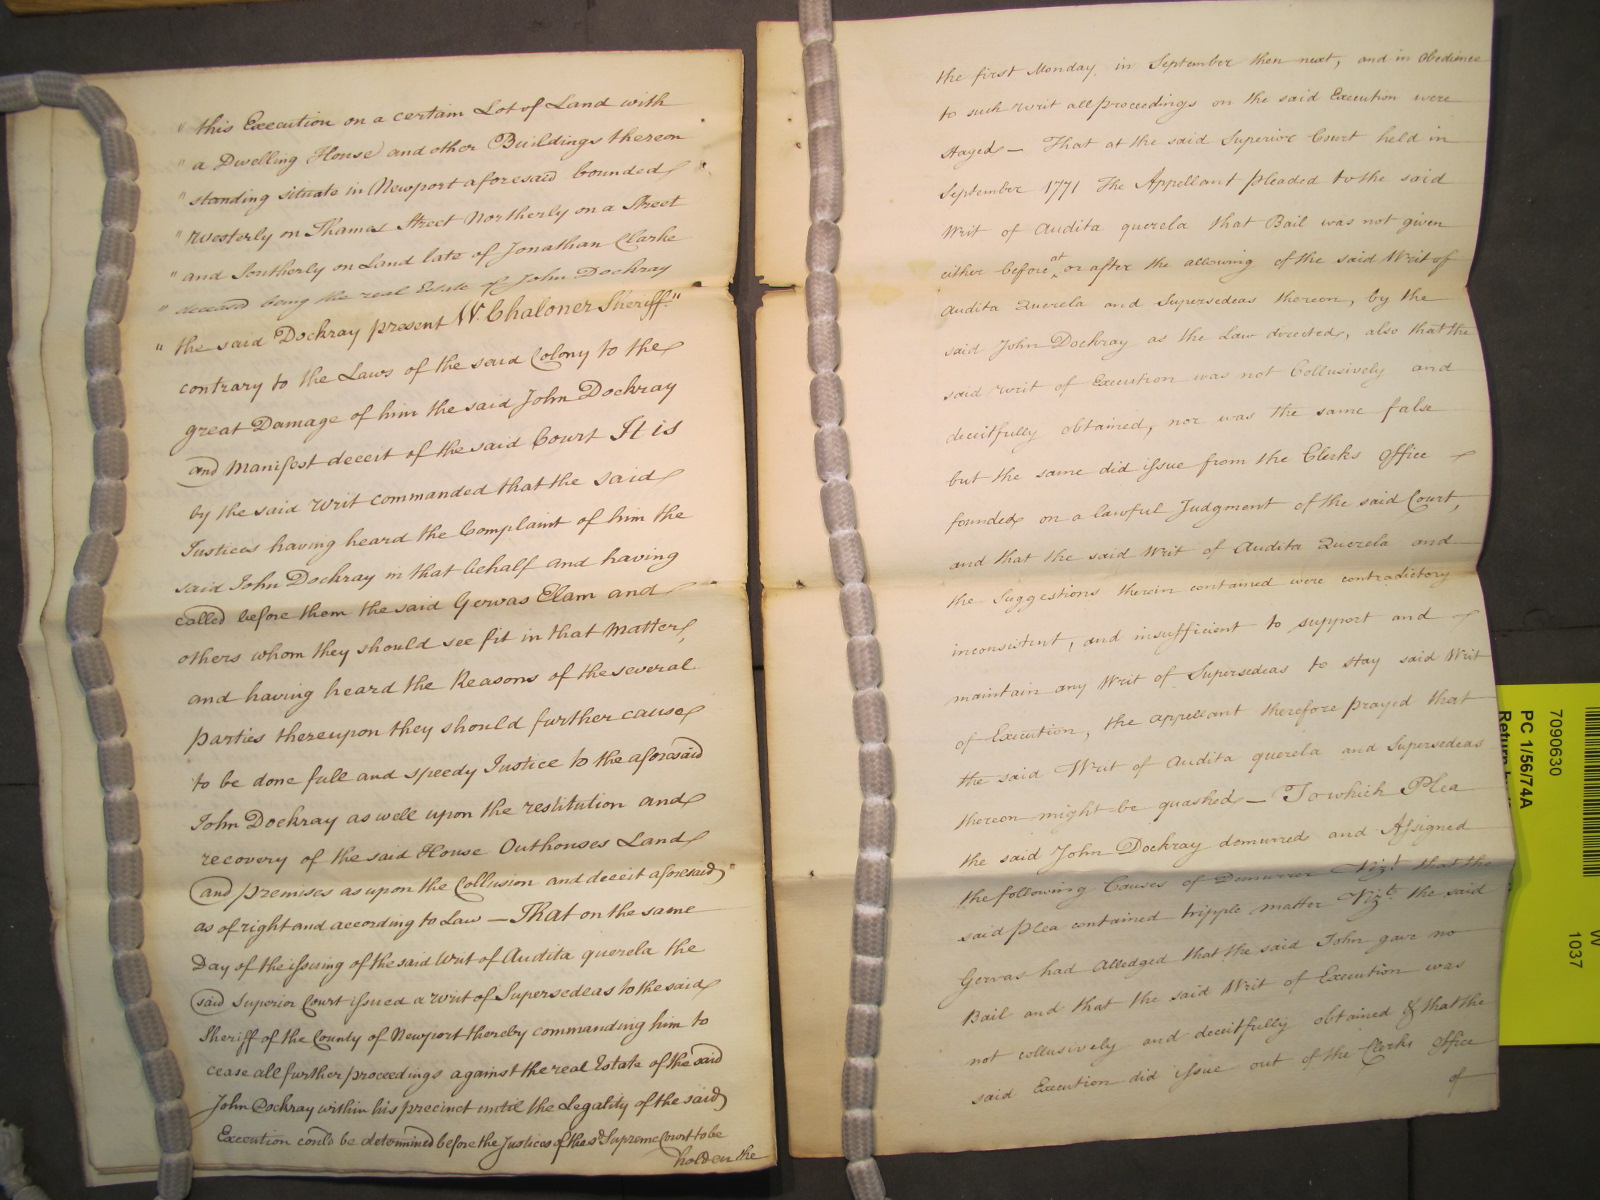 " this Execution on a certain Lot of Land with
" a Dwelling House and other Buildings thereon
" standing situate in Newport aforesaid bounded
" Westerly on Thames Street Northerly on a Street
" and Southerly on Land late of Jonathan Clarke
" deceased being the real Estate of John Dockray
" the said Dockray present W. Chaloner Sheriff."
contrary to the Laws of the said Colony to the
great Damage of him the said John Dockray
and manifest deceit of the said Court It is
by the said Writ commanded that the said
Justices having heard the Complaint of him the
said John Dockray in that behalf and having
called before them the said Gervas Elam and
others whom they should see fit in that matter,
and having heard the Reasons of the several
parties thereupon they should further cause
to be done full and speedy Justice to the aforesaid
John Dockray as well upon the restitution and
recovery of the said House Outhouses Land
and premises as upon the Collusion and deceit aforesaid"
as of right and according to Law — That on the same
Day of the issuing of the said Writ of Audita querela the
said Superior Court issued a Writ of Supersedeas to the said
Sheriff of the County of Newport thereby commanding him to
cease all further proceedings against the real Estate of the said
John Dockray within his precinct until the Legality of the said
Execution could be determined before the Justices of the sd. Supreme Court to be
holden the
the first Monday in September then next, and in Obedience
to such Writ all proceedings on the said Execution were
stayed — That at the said Superior Court held in
September 1771 The Appellant pleaded to the said
Writ of Audita querela that Bail was not given
either before at or after the allowing of the said Writ of
Audita Querela and Supersedeas thereon, by the
said John Dockray as the Law directed, also that the
said Writ of Execution was not Collusively and
deceitfully obtained, nor was the same false
but the same did issue from the Clerks Office
founded on a lawful Judgment of the said Court,
and that the said Writ of Audita Querela and
the Suggestions therein contained were contradictory
inconsistent, and insufficient to support and
maintain any Writ of Supersedeas to stay said Writ
of Execution, the appellant therefore prayed that
the said Writ of Audita querela and Supersedeas
thereon might be quashed — To which Plea
the said John Dockray demurred and Assigned
the following Causes of Demurrer Vizt. that the
said Plea contained tripple matter Vizt. the said
Gervas had Alledged that the said John gave no
Bail and that the said Writ of Execution was
not collusively and deceitfully obtained & that the
said Execution did issue out of the Clerks Office
of
7090630
PC 1/56/74A
W
1037